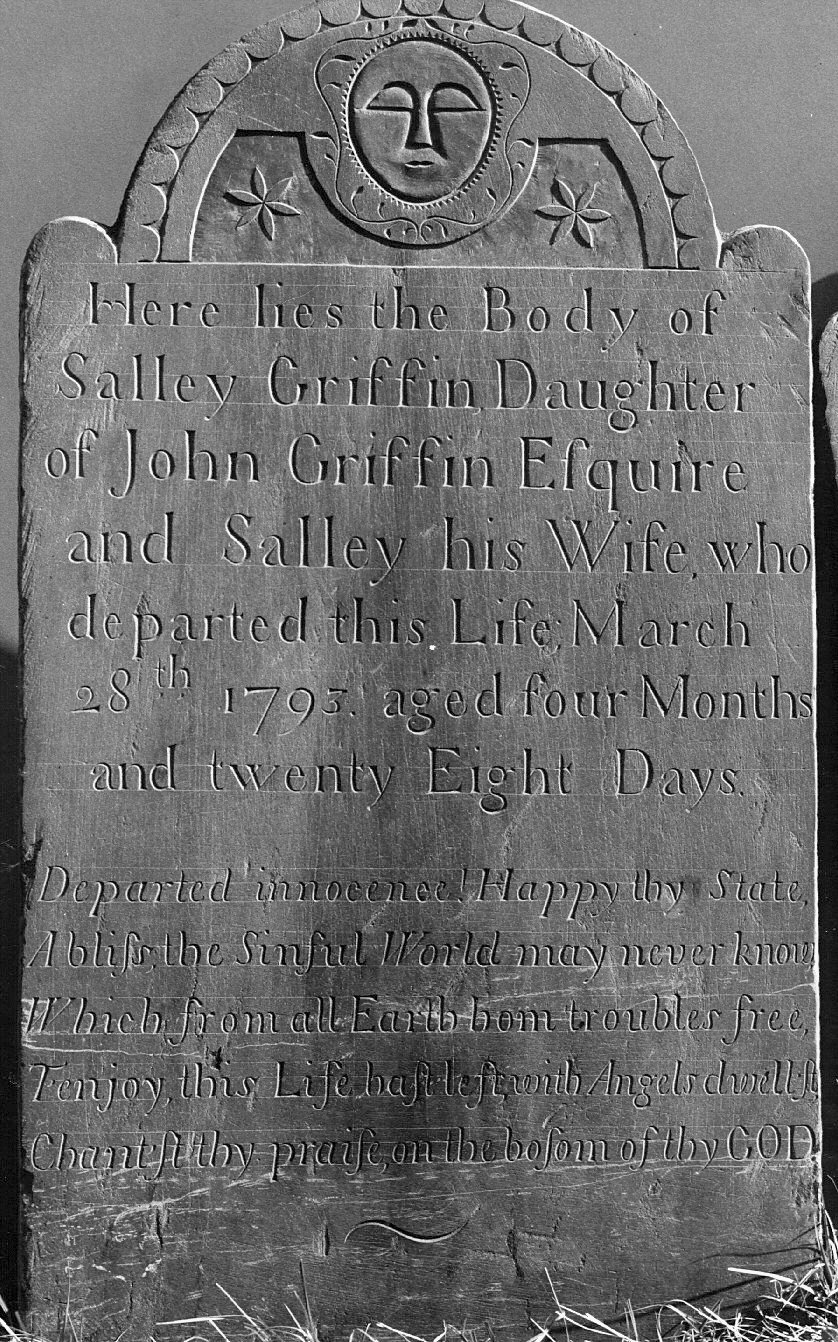 Here lies the Body of
Salley Griffin, Daughter
of John Griffin Eſquire
and Salley his Wife, who
departed this Life, March
28th 1793. aged four Months
and twenty Eight Days.
Departed innocence! Happy thy State,
A bliſs, the Sinful World may never know,
Which from all Earth bom troubles free,
T'enjoy, this Life haſt left, with Angels dwell'ſt,
Chant'ſt thy praiſe, on the boſom of thy GOD.